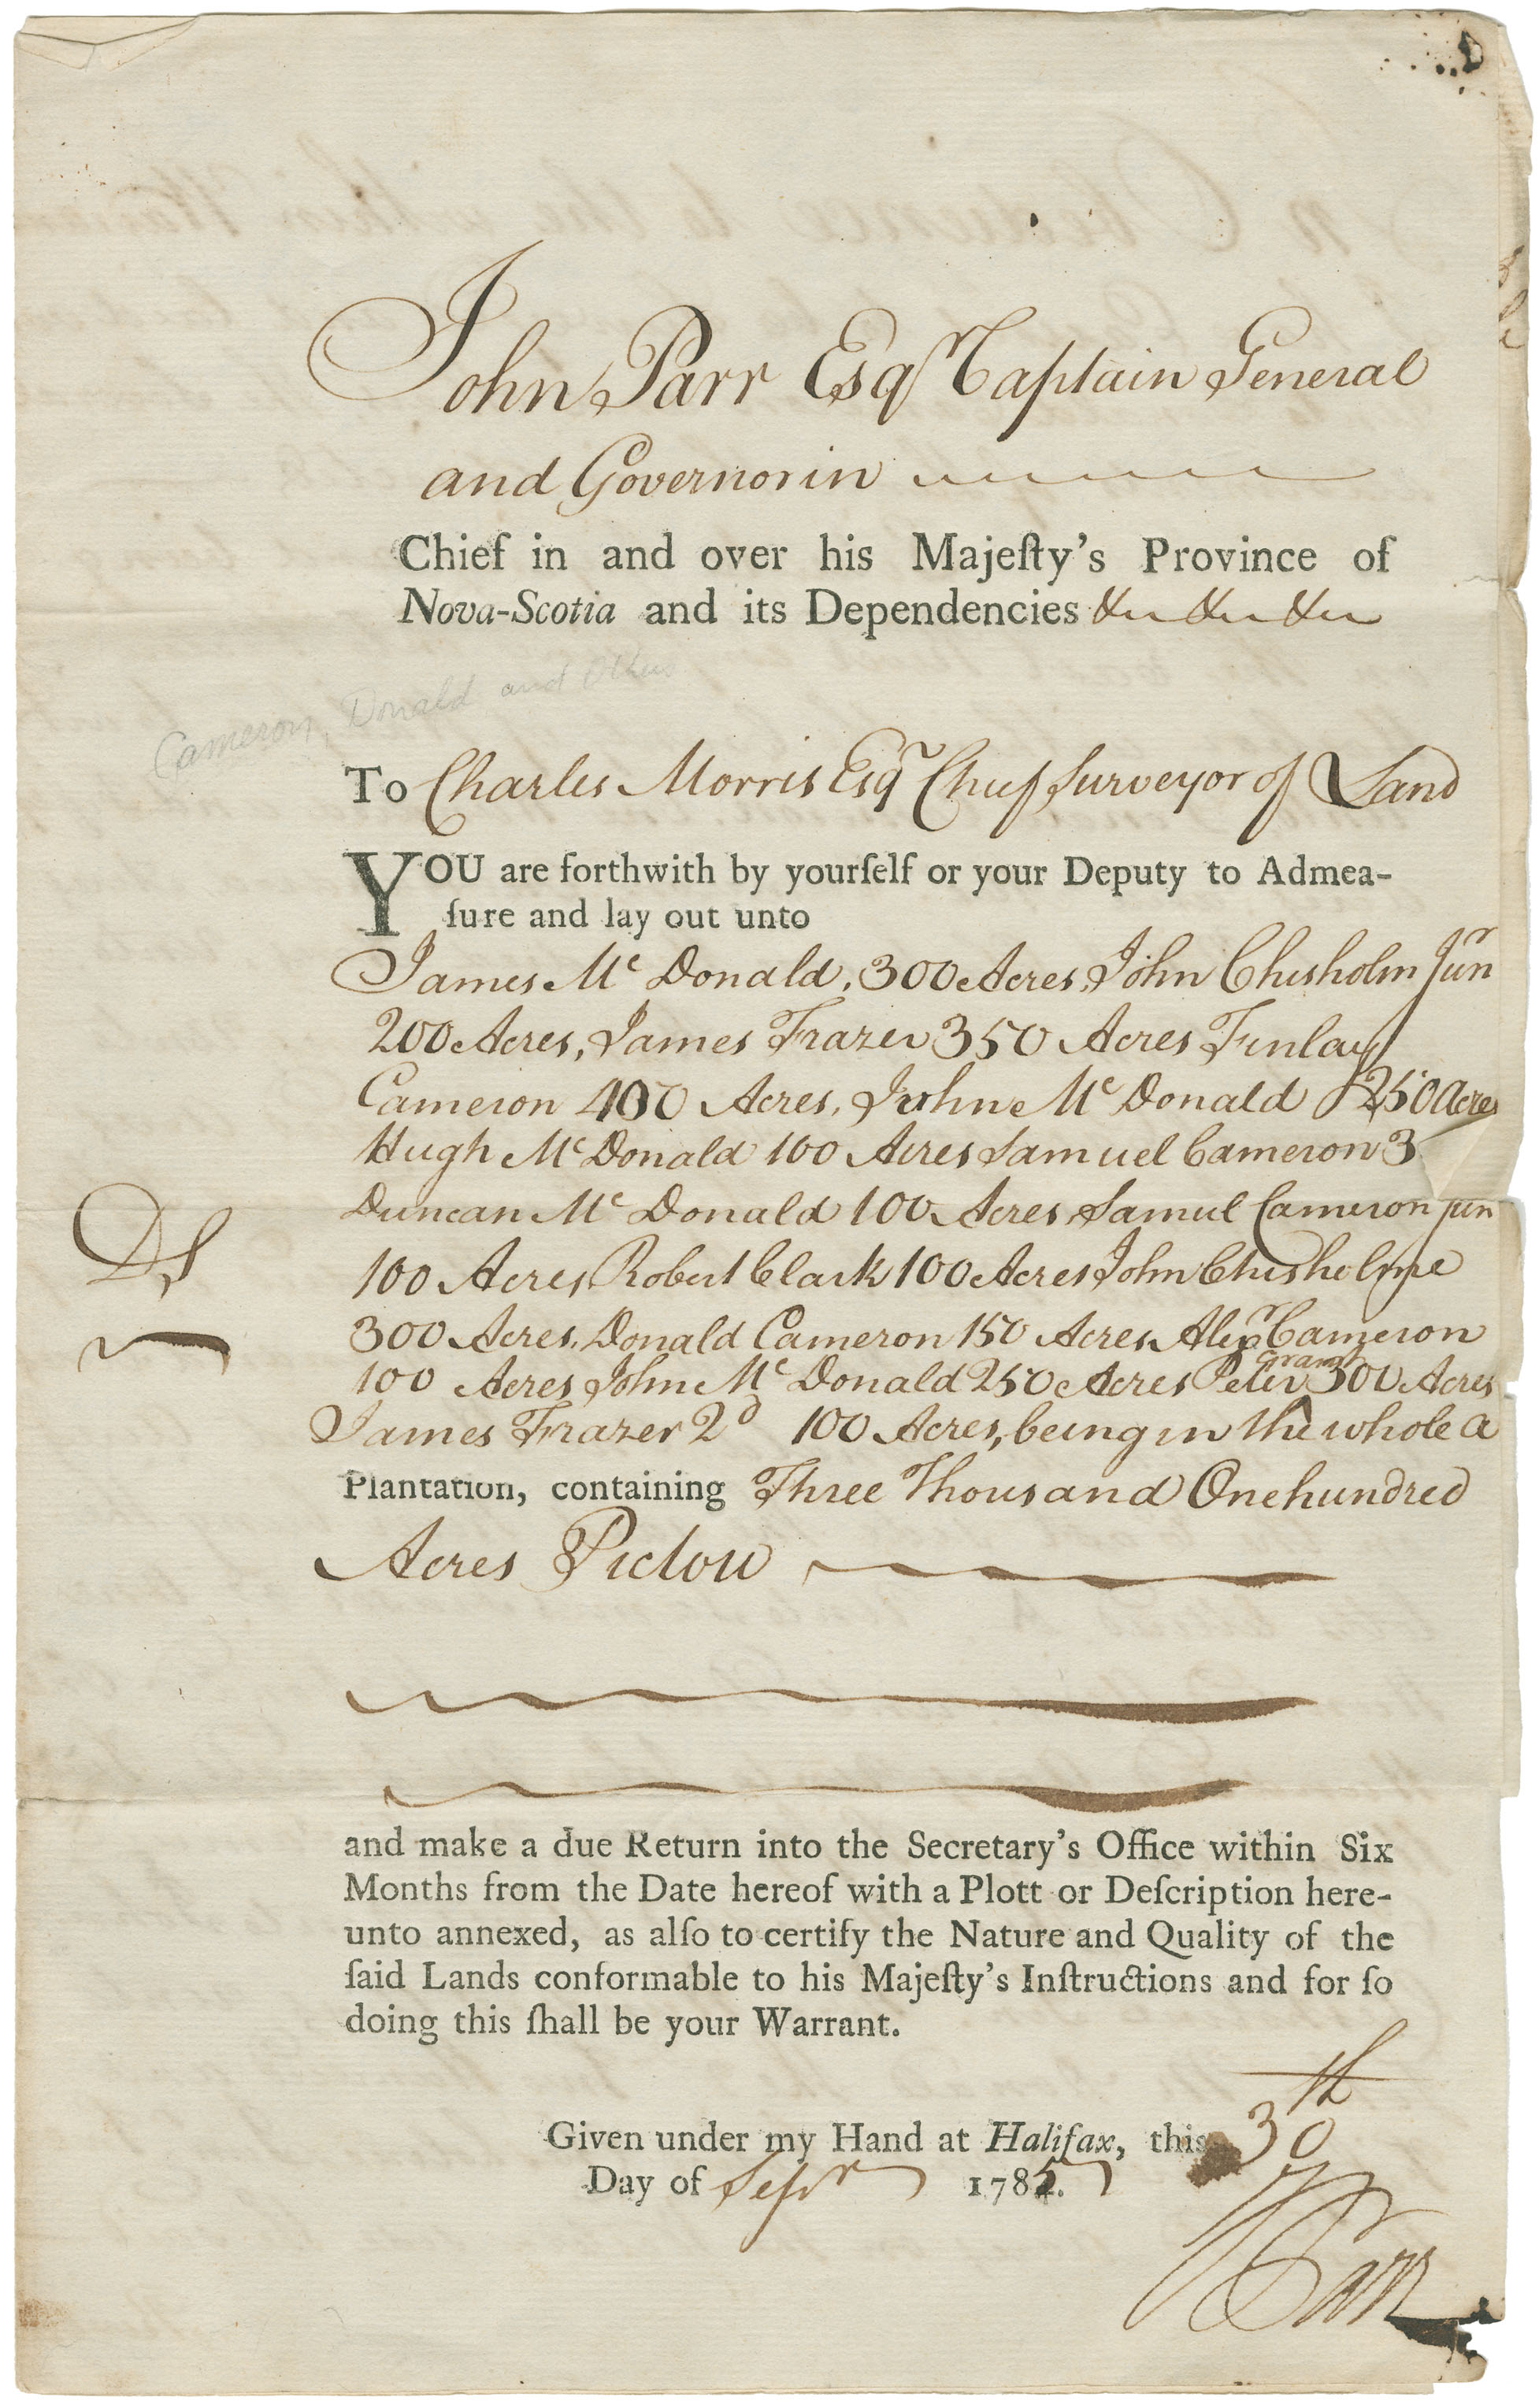 John Parr Esqr Captain General
and Governor in
Chief in and over his Majeſty's Province of
Nova-Scotia and its Dependencies &c &c &c
Cameron, Donald and Others
To Charles Morris Esqr Chief Surveyor of Land
YOU are forthwith by yourſelf or your Deputy to Admea-
ſure and lay out unto
James Mc Donald, 300 Acres, John Chisholm Junr
200 Acres, James Frazer 350 Acres Finlay
Cameron 400 Acres, John Mc Donald 250 Acres
Hugh Mc Donald 100 Acres Samuel Cameron 3
Duncan Mc Donald 100 Acres Samuel Cameron jun
100 Acres Robert Clark 100 Acres John Chisholme
300 Acres, Donald Cameron 150 Acres Alexr Cameron
100 Acres John Mc Donald 250 Acres Peter Grant 300 Acres
James Frazer 2d 100 Acres, being in the whole a
Plantation, containing Three Thousand One hundred
Acres Pictou
and make a due Return into the Secretary's Office within Six
Months from the Date hereof with a Plott or Deſcription here-
unto annexed, as alſo to certify the Nature and Quality of the
ſaid Lands conformable to his Majeſty's Inſtructions and for ſo
doing this ſhall be your Warrant.
Given under my Hand at Halifax, this 30th
Day of Sepr 1785.
J Parr